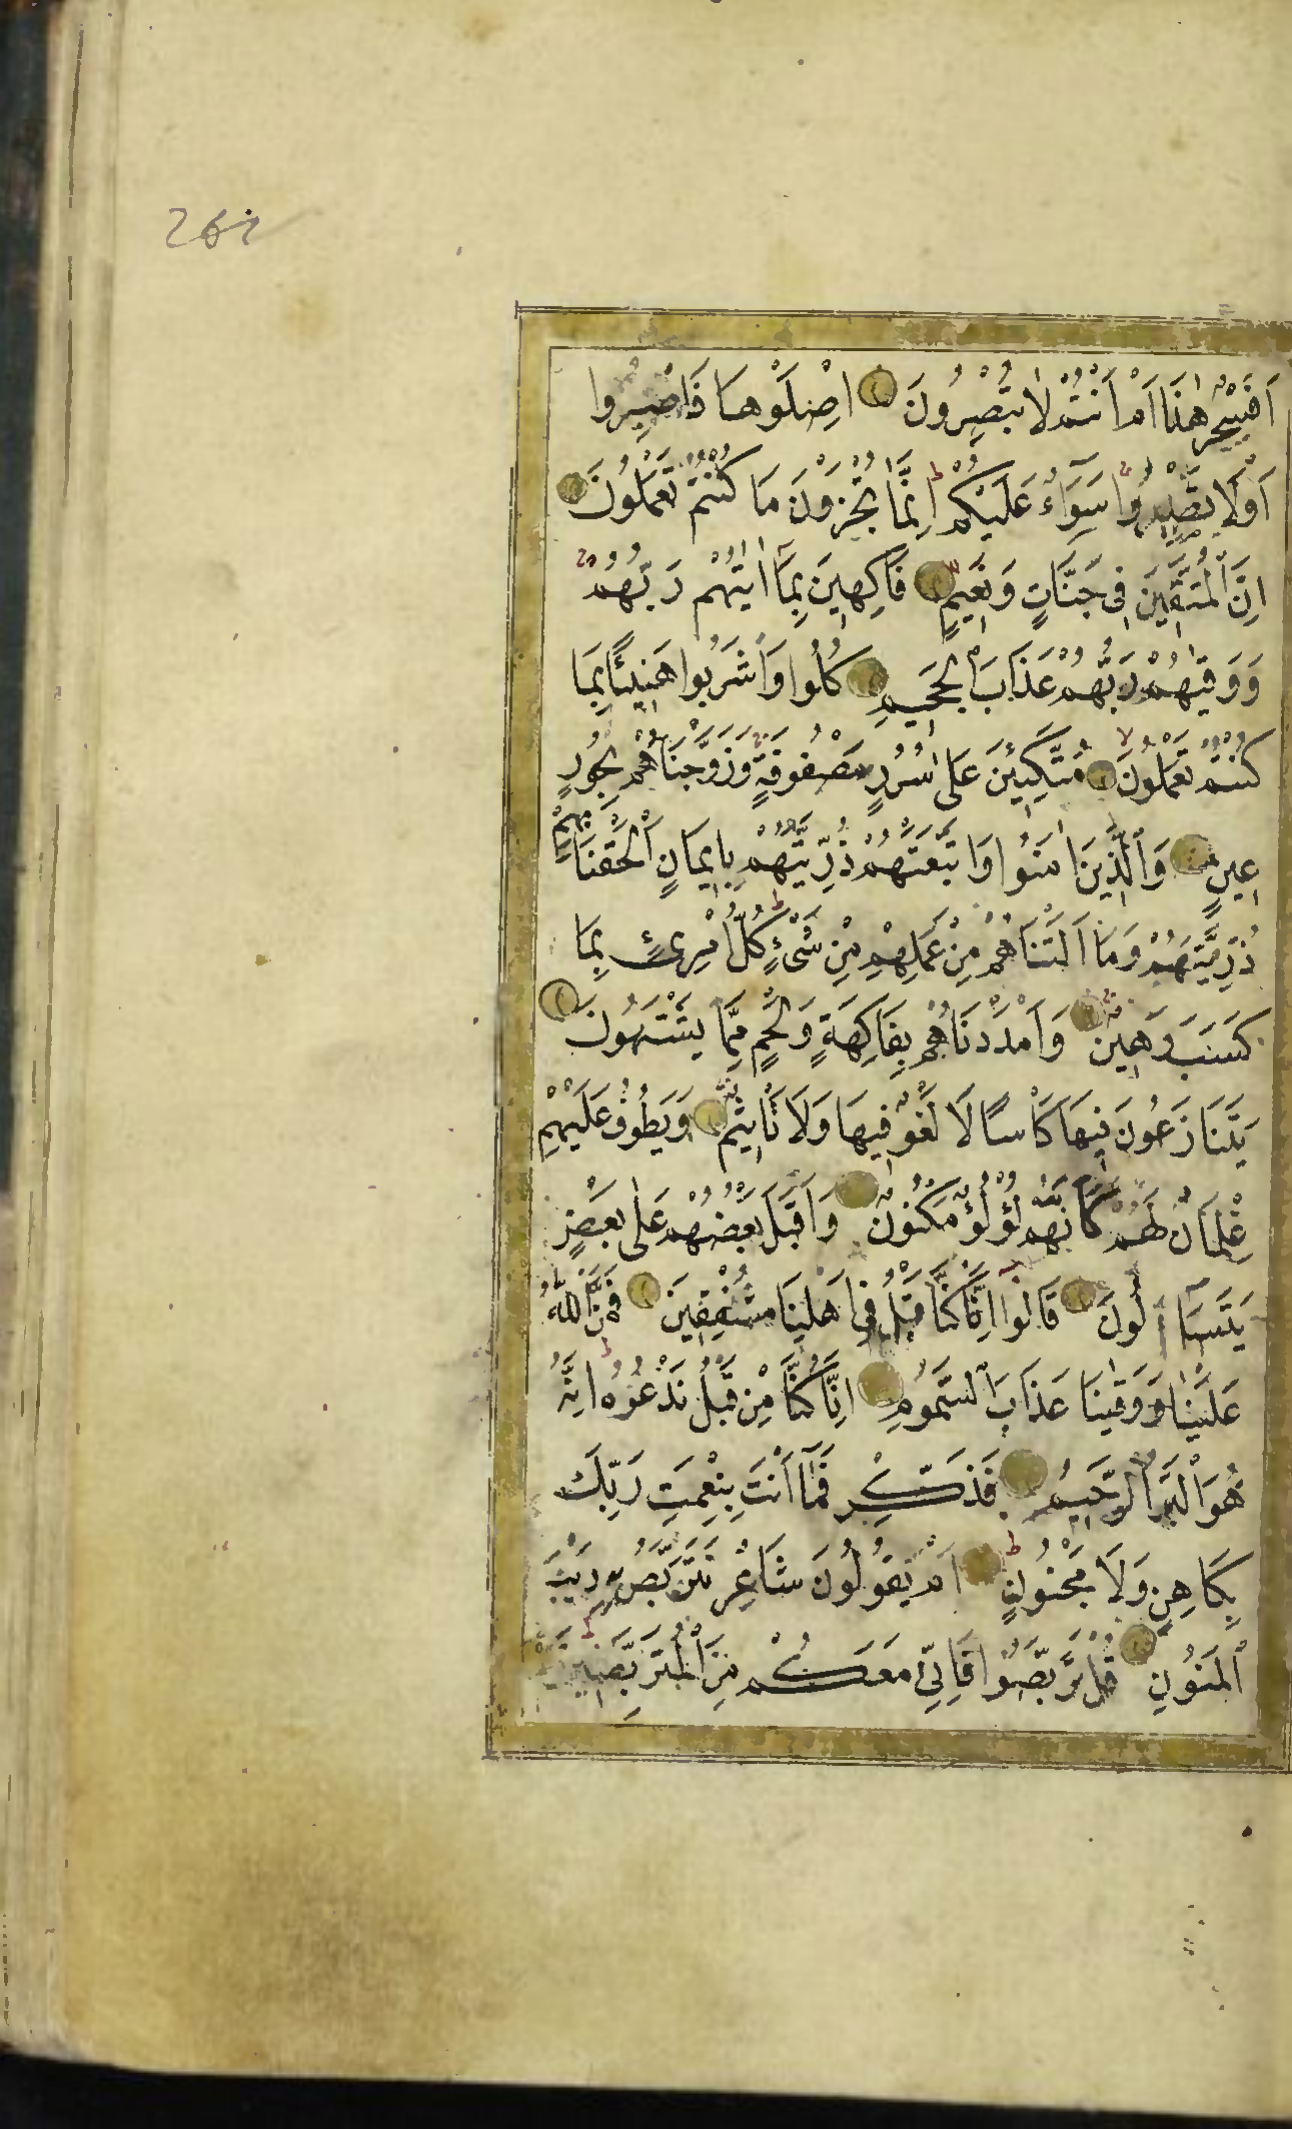 262
اَفَسِحْرٌ هٰذَا اَمْ اَنْتُمْ لَا تُبْصِرُونَ اِصْلَوْهَا فَاصْبِرُوا
اَوْ لَا تَصْبِرُوا سَوَاءٌ عَلَيْكُمْ اِنَّمَا تُجْزَوْنَ مَا كُنْتُمْ تَعْمَلُونَ
اِنَّ الْمُتَّقِينَ فِى جَنَّاتٍ وَنَعِيمٍ فَاكِهِينَ بِمَا اٰتٰيهُمْ رَبُّهُمْ
وَوَقٰيهُمْ رَبُّهُمْ عَذَابَ الْجَحِيمِ كُلُوا وَاشْرَبُوا هَنِيئًا بِمَا
كُنْتُمْ تَعْمَلُونَ مُتَّكِئِينَ عَلٰى سُرُرٍ مَصْفُوفَةٍ وَزَوَّجْنَاهُمْ بِحُورٍ
عِينٍ وَالَّذِينَ اٰمَنُوا وَاتَّبَعَتْهُمْ ذُرِّيَّتُهُمْ بِاِيمَانٍ اَلْحَقْنَا بِهِمْ
ذُرِّيَّتَهُمْ وَمَا اَلَتْنَاهُمْ مِنْ عَمَلِهِمْ مِنْ شَىْءٍ كُلُّ امْرِئٍ بِمَا
كَسَبَ رَهِينٌ وَاَمْدَدْنَاهُمْ بِفَاكِهَةٍ وَلَحْمٍ مِمَّا يَشْتَهُونَ
يَتَنَازَعُونَ فِيهَا كَاْسًا لَا لَغْوٌ فِيهَا وَلَا تَاْثِيمٌ وَيَطُوفُ عَلَيْهِمْ
غِلْمَانٌ لَهُمْ كَاَنَّهُمْ لُؤْلُؤٌ مَكْنُونٌ وَاَقْبَلَ بَعْضُهُمْ عَلٰى بَعْضٍ
يَتَسَاءَلُونَ قَالُوا اِنَّا كُنَّا قَبْلُ فِى اَهْلِنَا مُشْفِقِينَ فَمَنَّ اللّٰهُ
عَلَيْنَا وَوَقٰينَا عَذَابَ السَّمُومِ اِنَّا كُنَّا مِنْ قَبْلُ نَدْعُوهُ اِنَّهُ
هُوَ الْبَرُّ الرَّحِيمُ فَذَكِّرْ فَمَا اَنْتَ بِنِعْمَتِ رَبِّكَ
بِكَاهِنٍ وَلَا مَجْنُونٍ اَمْ يَقُولُونَ شَاعِرٌ نَتَرَبَّصُ بِهِ رَيْبَ
الْمَنُونِ قُلْ تَرَبَّصُوا فَاِنِّى مَعَكُمْ مِنَ الْمُتَرَبِّصِينَ